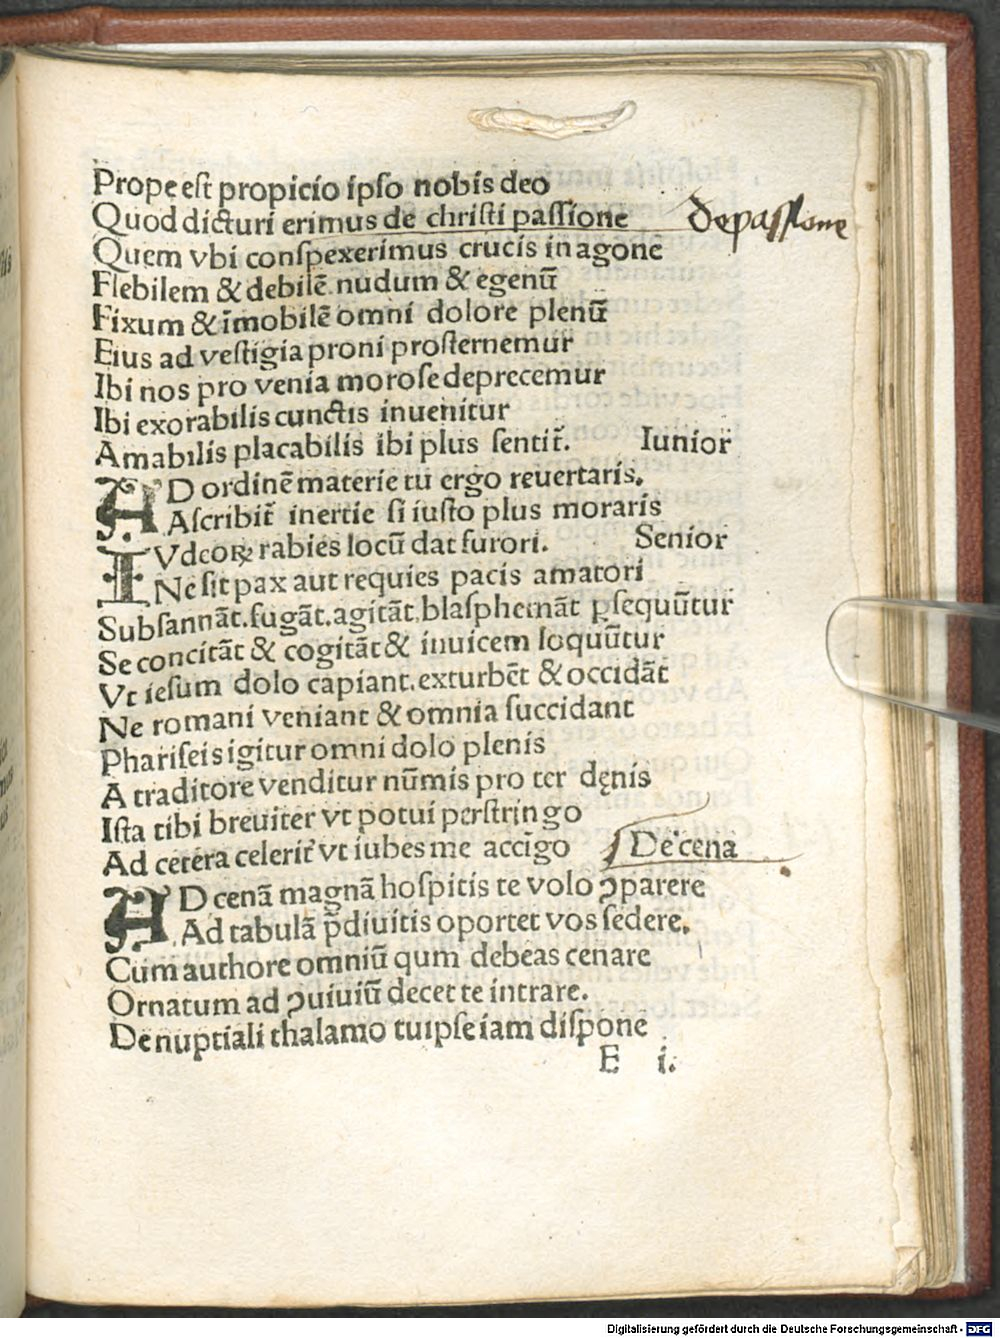 Prope est propicio ipso nobis deo
Quod dicturi erimus de christi passione
de passione
Quem vbi conspexerimus crucis in agone
Flebilem & debilē nudum & egenū
Fixum & īmobilē omni dolore plenū
Eius ad vestigia proni prosternemur
Ibi nos pro venia morose deprecemur
Ibi exorabilis cunctis inuenitur
Amabilis placabilis ibi plus sentit̄. Iunior
AD ordinē materie tu ergo reuertaris.
Ascribit̄ inertie si iusto plus moraris
IVdeoꝝ rabies locū dat furori. Senior
Ne sit pax aut requies pacis amatori
Subsannāt. fugāt. agitāt. blasphemāt ꝑsequūtur
Se concitāt & cogitāt & inuicem loquūtur
Vt iesum dolo capiant. exturbēt & occidāt
Ne romani veniant & omnia succidant
Phariseis igitur omni dolo plenis
A traditore venditur nūmis pro ter dęnis
Ista tibi breuiter vt potui perstringo
Ad cetera celerit̄ vt iubes me accīgo De cena
AD cenā magnā hospitis te volo ꝯparere
Ad tabulā p̄diuitis oportet vos sedere.
Cum authore omniū qum debeas cenare
Ornatum ad ꝯuiuiū decet te intrare.
De nuptiali thalamo tuipse iam dispone
E i.
Digitalisierung gefördert durch die Deutsche Forschungsgemeinschaft - DFG